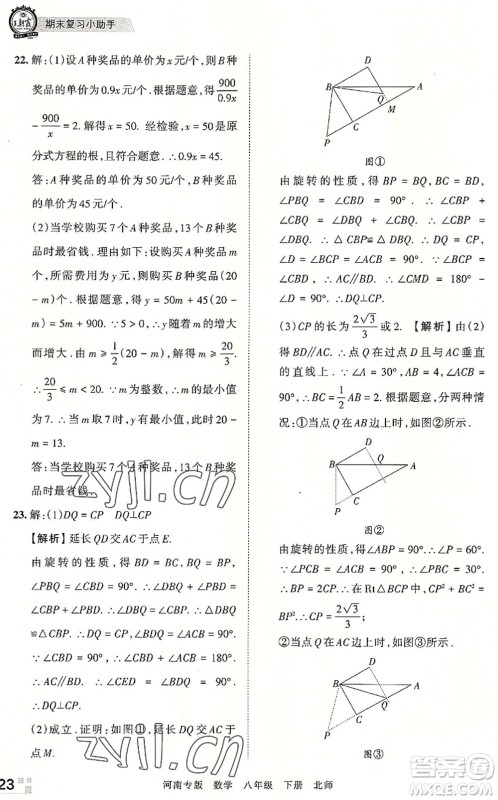 王朝霞
期末复习小助手
22. 解：(1)设 A 种奖品的单价为 x 元/件，则 B 种
奖品的单价为 0.9x 元/件. 根据题意，得 900/0.9x
- 900/x = 2. 解得 x = 50. 经检验，x = 50 是原
分式方程的根，且符合题意. ∴ 0.9x = 45.
答：A 种奖品的单价为 50 元/件，B 种奖品的
单价为 45 元/件.
(2)当学校购买 7 个 A 种奖品，13 个 B 种奖品
时最省钱. 理由如下：设购买 A 种奖品 m
件，购买两种奖品的总费用为 y 元，则购买 B
种奖品(20 - m)件. 根据题意，得 y = 50m + 45(20
- m) = 5m + 900. ∵ 5 > 0，∴ y 随着 m 的增大
而增大. 由 m ≥ 1/2(20 - m)，得 m ≥ 20/3.
∴ 20/3 ≤ m < 20. ∵ m 为整数，∴ m 的最小值
为 7. ∴ 当 m 取 7 时，y 有最小值.
答：当学校购买 7 个 A 种奖品，13 个 B 种奖
品时最省钱.
23. 解：(1)DQ = CP　DQ⊥CP
【解析】延长 DQ 交 AC 于点 E.
由旋转的性质，得 BD = BC，BQ = BP，
∠PBQ = ∠CBD = 90°. ∴ ∠DBQ =
∠CBP. ∴ △DBQ≌△CBP. ∴ DQ = CP，
∠BDQ = ∠BCP = ∠BCA = 90°.
∵ ∠CBD = 90°，∴ ∠CBD + ∠BDQ =
180°. ∴ CB∥DQ. ∴ ∠DEC = ∠BCA =
90°. ∴ DQ⊥CP.
(2)成立. 证明：如图①，延长 DQ 交 AC 于
点 M.
D
B
A
Q
M
C
P
图①
由旋转的性质，得 BP = BQ，BC = BD，
∠PBQ = ∠CBD = 90°. ∴ ∠CBP =
∠DBQ. ∴ △CBP≌△DBQ. ∴ CP = DQ，
∠D = ∠BCP = ∠BCA = 90°. ∵ ∠CBD +
∠BCA + ∠D + ∠CMD = 360°，
∠CBD = 90°，∴ ∠CMD = 180° -
∠D = 90°. ∴ DQ⊥CP.
(3)CP 的长为 2√3/3 或2. 【解析】由(2)
得 ∠BDQ = 90°. ∴ Q 在过点 D 且与 BD 垂
直的直线上. ∵ ∠A = 30°，∠BCA =
90°，∴ BC = 1/2 AB = 2. 根据题意，分两种情
况：①当点 Q 在 AB 边上时，如图②所示.
D
Q
B
A
C
P
图②
由旋转的性质，得 ∠P = 60°. ∴ ∠PBC = 30°.
∴ BP = 2CP. 在 Rt△CBP 中，CP² + BC² =
BP². ∴ CP = 2√3/3；
②当点 Q 在 AC 边上时，如图③所示.
D
B
A
Q
C
P
图③
zyjl.cn
23
河南专版　数学　八年级　下册　北师